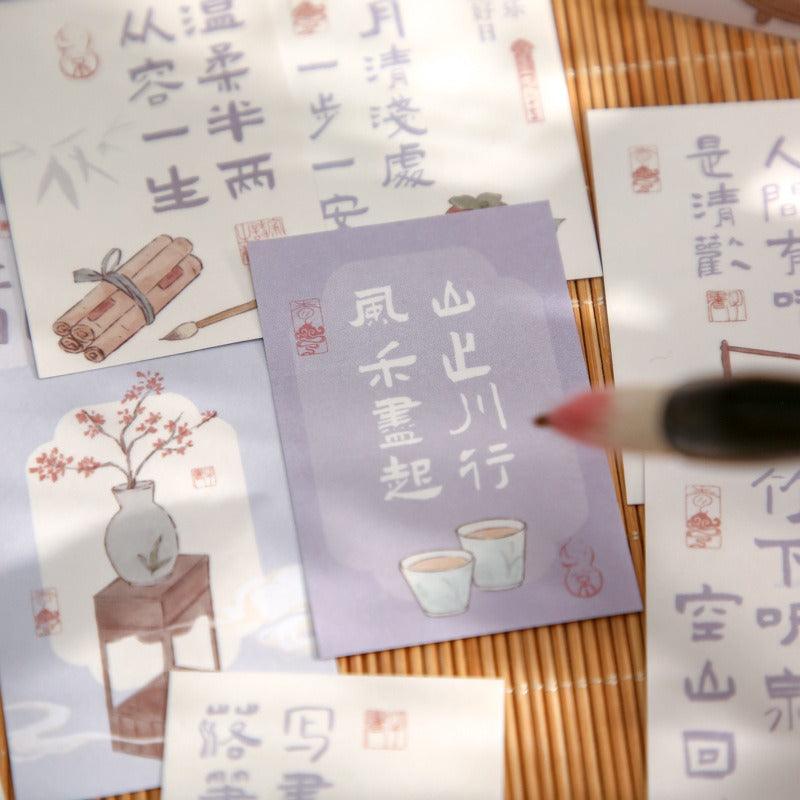 温柔半两
从容一生
月清淺處
一步一安
好日
人間有味
是清歡
山止川行
風禾盡起
竹下听泉
空山回
写書
落筆